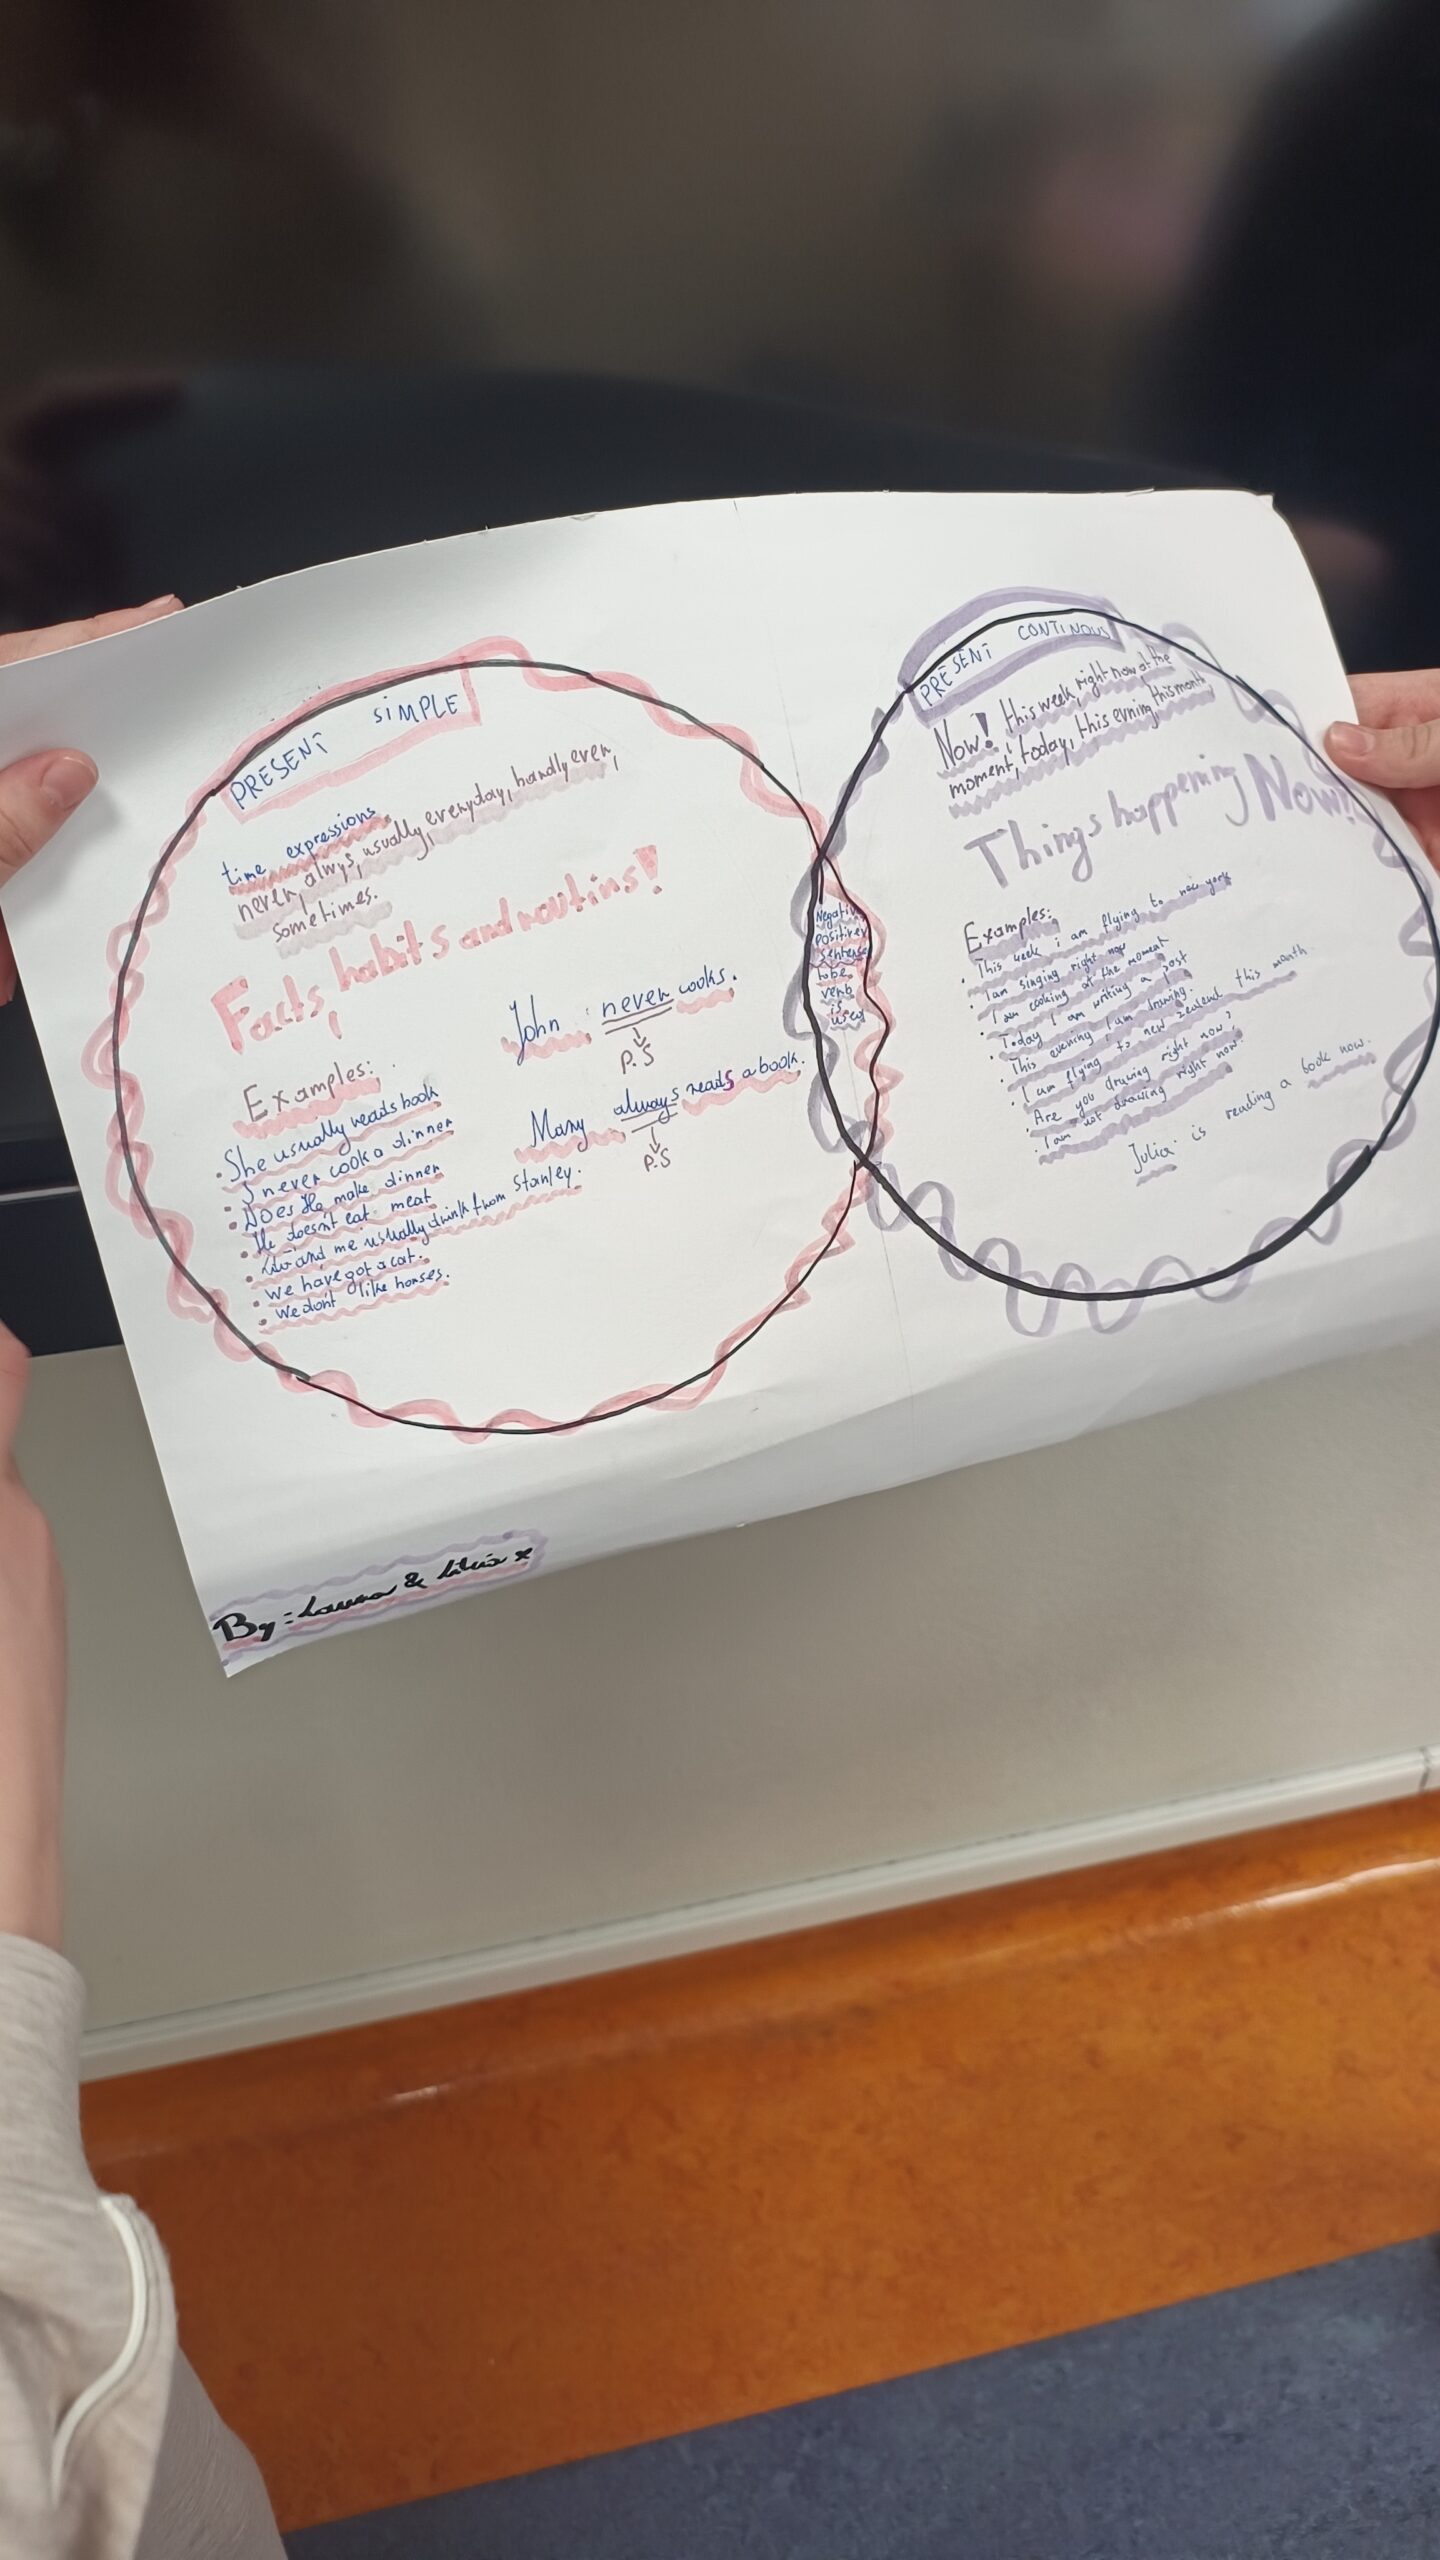 PRESENT SIMPLE
time expressions
never, always, usually, everyday, hardly ever,
sometimes.
Facts, habits and routins!
Examples:
She usually reads book
I never cook a dinner
DOES He make dinner
He doesn't eat meat
and me usually drink from Stanley.
we have got a cat.
we don't like horses.
John never cooks.
P.S
Many always reads a book.
P.S
Negative
positives
sentense
to be
verb
is
used
PRESENT CONTINOUS
Now! this week, right now, at the
moment, today, this evning, this month,
Things happening Now!
Examples:
This week i am flying to new york
I am singing right now
I am cooking at the moment
Today I am writing a post
This evening I am drawing.
I am flying to new zealend this month
Are you drawing right now?
I am not drawing right now.
Julia is reading a book now.
By: